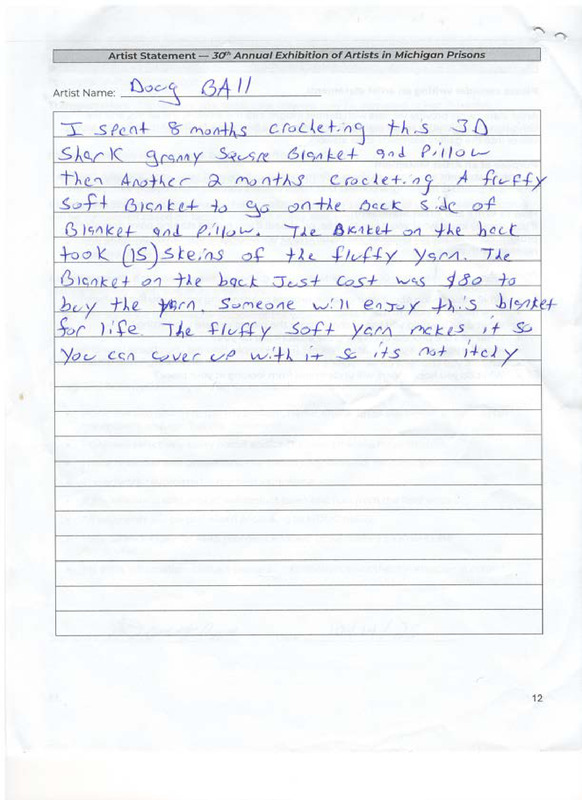 Artist Statement — 30th Annual Exhibition of Artists in Michigan Prisons
Artist Name: Doug BAll
I spent 8 months crocheting this 3D
Shark granny Square Blanket and Pillow
then Another 2 months crocheting A fluffy
Soft Blanket to go on the back side of
Blanket and Pillow. The Blanket on the back
took (15) Skeins of the fluffy Yarn. The
Blanket on the back Just cost was $80 to
buy the yarn. Someone will enjoy this blanket
for life The fluffy Soft Yarn makes it so
You can cover up with it so its not itchy
12